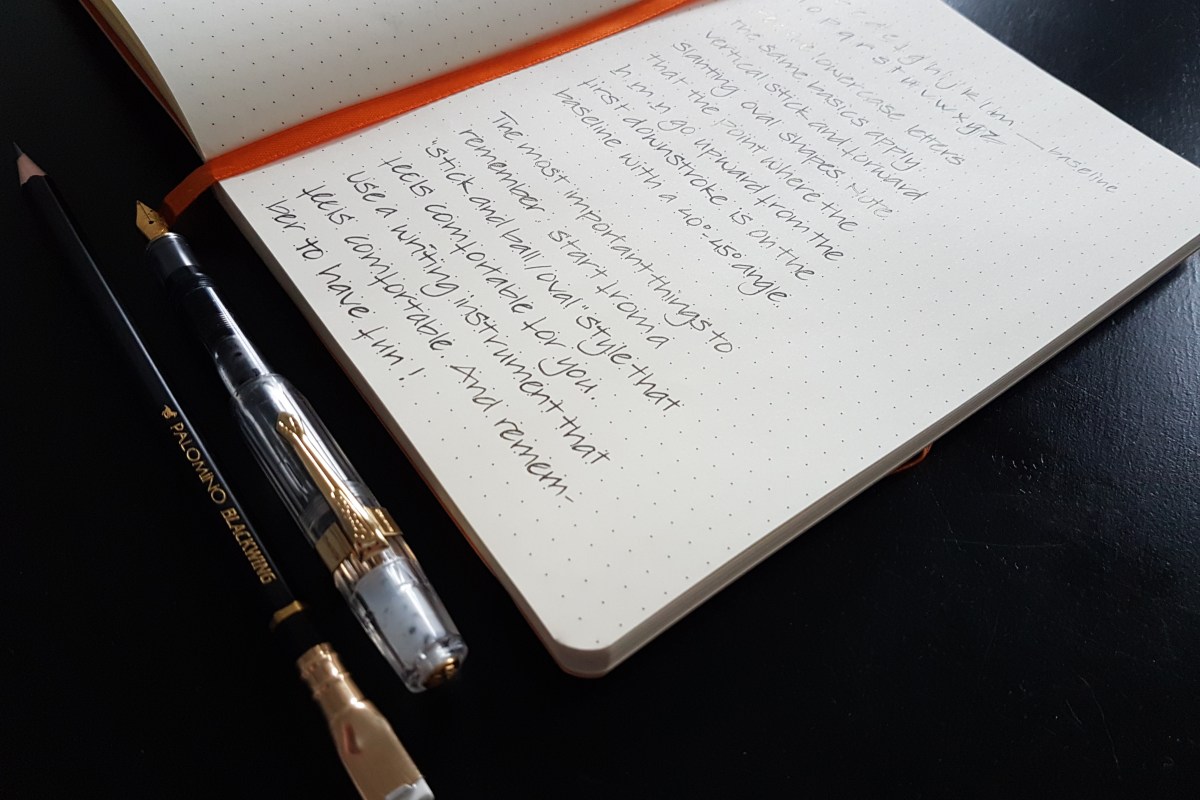 d e f g h i j k l m baseline
o p q r s t u v w x y z
lowercase letters
the same basics apply
vertical stick and forward
slanting oval shapes. Note
that the point where the
h.m.n go upward from the
first downstroke is on the
baseline with a 40°-45° angle.
The most important things to
remember: start from a
"stick and ball/oval" style that
feels comfortable for you.
use a writing instrument that
feels comfortable. And remem-
ber to have fun!
PALOMINO BLACKWING